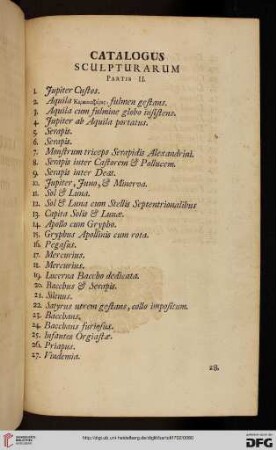 CATALOGUS
SCULPTURARUM
PARTIS II.
1. Jupiter Custos.
2. Aquila fulmen gestans.
3. Aquila cum fulmine globo insistens.
4. Jupiter ab Aquila portatus.
5. Serapis.
6. Serapis.
7. Monstrum triceps Serapidis Alexandrini.
8. Serapis inter Castorem & Pollucem.
9. Serapis inter Deas.
10. Jupiter, Juno, & Minerva.
11. Sol & Luna.
12. Sol & Luna cum Stellis Septentrionalibus
13. Capita Solis & Lunæ.
14. Apollo cum Grypho.
15. Gryphus Apollinis cum rota.
16. Pegasus.
17. Mercurius.
18. Mercurius.
19. Lucerna Baccho dedicata.
20. Bacchus & Serapis.
21. Silenus.
22. Satyrus utrem gestans, collo impositum.
23. Bacchans.
24. Bacchans furiosus.
25. Infantes Orgiastæ.
26. Priapus.
27. Vindemia.
28.
http://digi.ub.uni-heidelberg.de/diglit/bartoli1702/0090
DFG